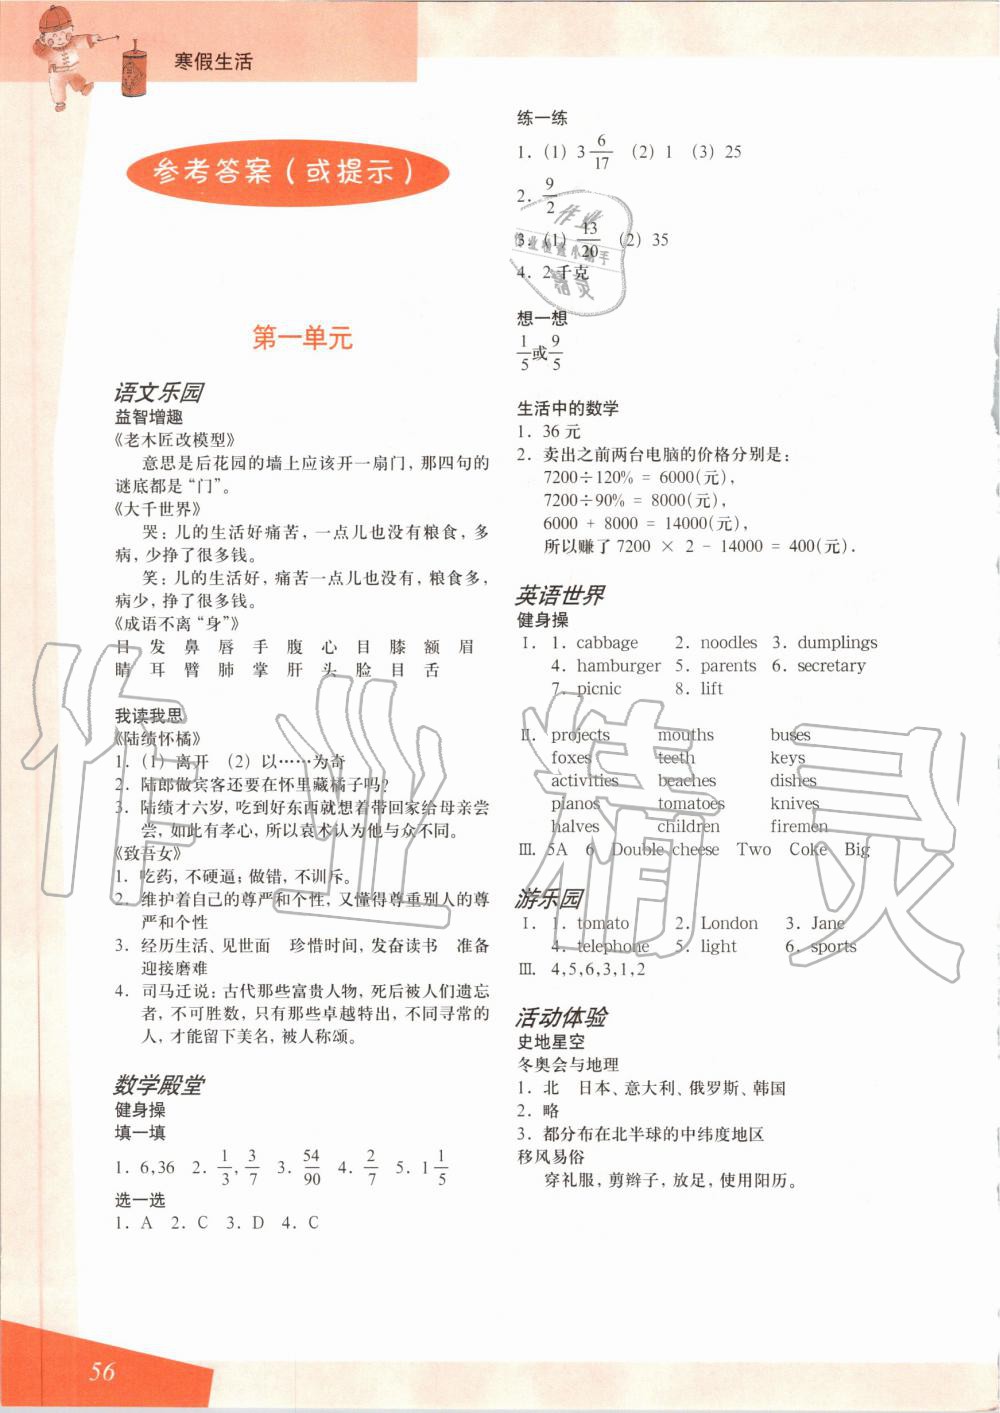 寒假生活
参考答案（或提示）
第一单元
语文乐园
益智增趣
《老木匠改模型》
意思是后花园的墙上应该开一扇门，那四句的
谜底都是“门”。
《大千世界》
哭：儿的生活好痛苦，一点儿也没有粮食，多
病，少挣了很多钱。
笑：儿的生活好，痛苦一点儿也没有，粮食多，
病少，挣了很多钱。
《成语不离“身”》
目 发 鼻 唇 手 腹 心 目 膝 额 眉
睛 耳 臂 肺 掌 肝 头 脸 目 舌
我读我思
《陆绩怀橘》
1. （1）离开 （2）以……为奇
2. 陆郎做宾客还要在怀里藏橘子吗？
3. 陆绩才六岁，吃到好东西就想着带回家给母亲尝
尝，如此有孝心，所以袁术认为他与众不同。
《致吾女》
1. 吃药，不硬逼；做错，不训斥。
2. 维护着自己的尊严和个性，又懂得尊重别人的尊
严和个性
3. 经历生活、见世面 珍惜时间，发奋读书 准备
迎接磨难
4. 司马迁说：古代那些富贵人物，死后被人们遗忘
者，不可胜数，只有那些卓越特出，不同寻常的
人，才能留下美名，被人称颂。
数学殿堂
健身操
填一填
1. 6,36 2. 1/3, 3/7 3. 54/90 4. 2/7 5. 1 1/5
选一选
1. A 2. C 3. D 4. C
练一练
1. （1）3 6/17 （2）1 （3）25
2. 9/2
3. （1）13/20 （2）35
4. 2千克
想一想
1/5或9/5
生活中的数学
1. 36元
2. 卖出之前两台电脑的价格分别是：
7200÷120% = 6000(元)，
7200÷90% = 8000(元)，
6000 + 8000 = 14000(元)，
所以赚了 7200 × 2 - 14000 = 400(元).
英语世界
健身操
Ⅰ. 1. cabbage 2. noodles 3. dumplings
4. hamburger 5. parents 6. secretary
7. picnic 8. lift
Ⅱ. projects mouths buses
foxes teeth keys
activities beaches dishes
pianos tomatoes knives
halves children firemen
Ⅲ. 5A 6 Double cheese Two Coke Big
游乐园
Ⅰ. 1. tomato 2. London 3. Jane
4. telephone 5. light 6. sports
Ⅲ. 4,5,6,3,1,2
活动体验
史地星空
冬奥会与地理
1. 北 日本、意大利、俄罗斯、韩国
2. 略
3. 都分布在北半球的中纬度地区
移风易俗
穿礼服，剪辫子，放足，使用阳历。
56
作业精灵